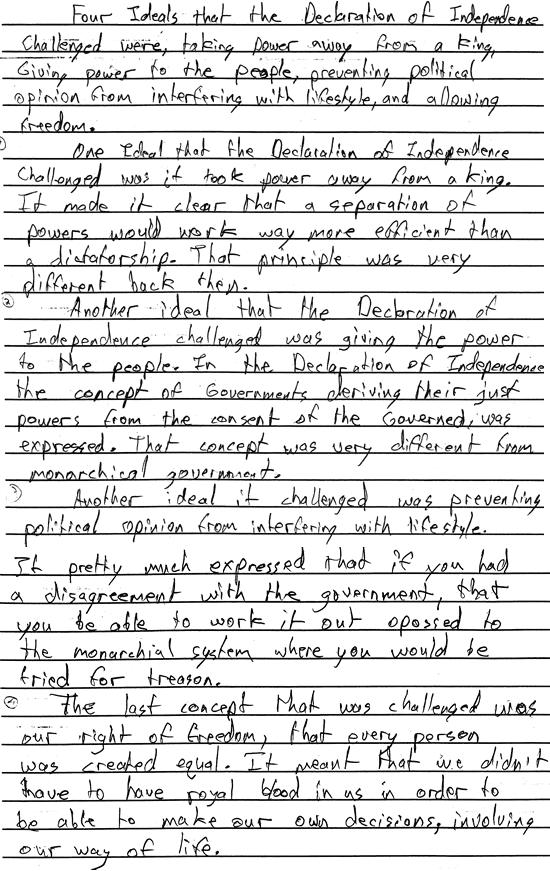 Four Ideals that the Declaration of Independence
Challenged were, taking power away from a king,
Giving power to the people, preventing political
opinion from interfering with lifestyle, and allowing
freedom.
One Ideal that the Declaration of Independence
Challenged was it took power away from a king.
It made it clear that a separation of
powers would work way more efficient than
a dictatorship. That principle was very
different back then.
② Another ideal that the Declaration of
Independence challenged was giving the power
to the people. In the Declaration of Independence
the concept of Governments deriving their just
powers from the consent of the Governed, was
expressed. That concept was very different from
monarchical government.
③ Another ideal it challenged was preventing
political opinion from interfering with lifestyle.
It pretty much expressed that if you had
a disagreement with the government, that
you be able to work it out opossed to
the monarchial system where you would be
tried for treason.
④ The last concept that was challenged was
our right of freedom, that every person
was created equal. It meant that we didn't
have to have royal blood in us in order to
be able to make our own decisions, involving
our way of life.